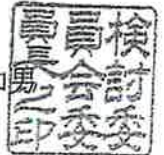 勇
検討委
員会委
員長之印